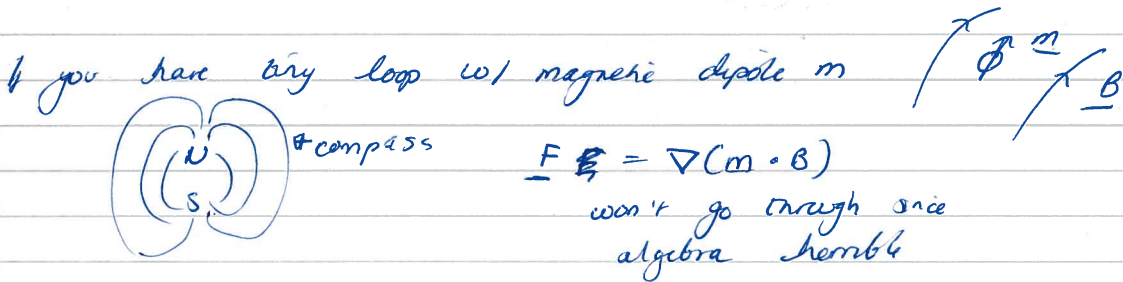 If you have tiny loop w/ magnetic dipole m
m
B
N
S
compass
F = ∇(m · B)
won't go through since
algebra horrible